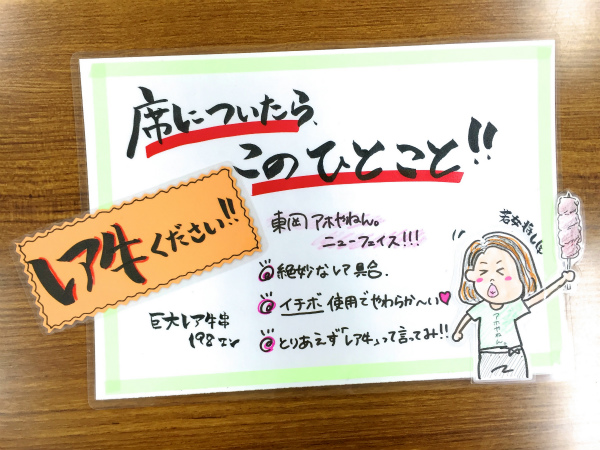 席についたら、
このひとこと!!
レア牛ください!!
東岡アホやねん。
ニューフェイス!!!
絶妙なレア具合.
イチボ使用でやわらか〜い♥
とりあえず「レア牛」って言ってみ!!
巨大レア牛串
198エン
アホやねん